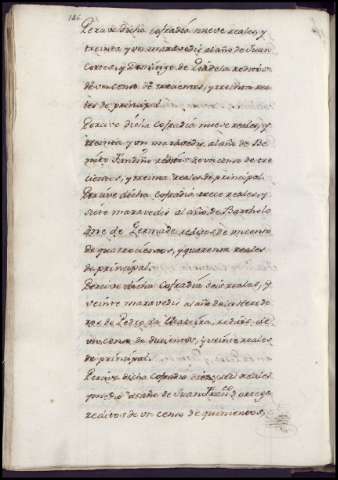 186
Percive dicha cofradia nueve reales, y
treinta y un maravedis al año de Juan
Cortes, y Domingo de reditos
de un censo de trecientos, y treinta rea
les de principal.
Percive dicha cofradia nueve reales, y
treinta y un maravedis, al año de Be
nito Fandiño reditos de un censo de tre
cientos, y treinta reales de principal.
Percive dicha cofradia trece reales, y
siete maravedis al año de Barthelo
me de reditos de un censo
de quatrocientos, y quarenta reales
de principal.
Percive dicha cofradia seis reales, y
veinte maravedis al año de
de Pedro da reditos de
un censo de ducientos, y veinte reales
de principal.
Percive dicha cofradia reales
al año de Juan
reditos de un censo de quinientos,